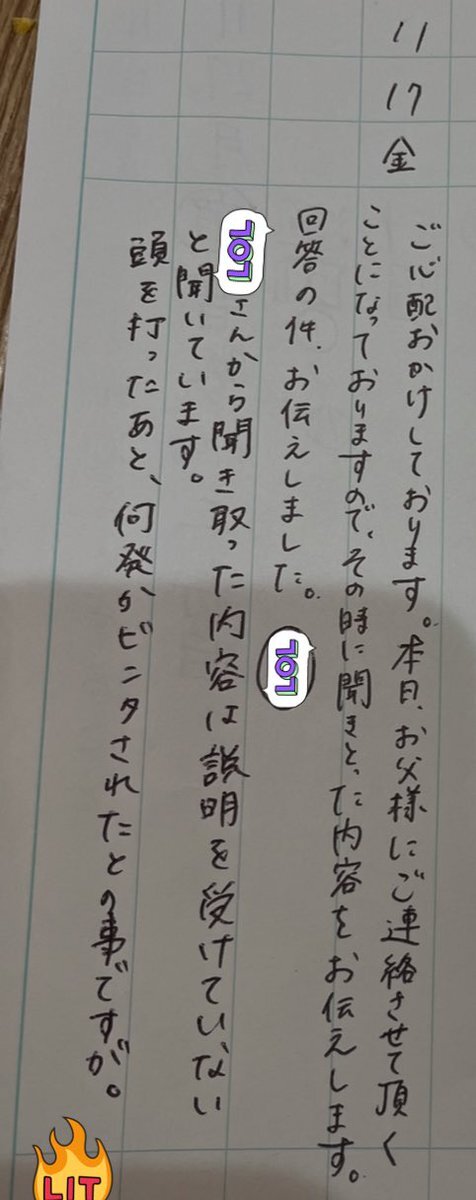 11
17
金
ご心配おかけしております。本日、お父様にご連絡させて頂く
ことになっておりますので、その時に聞きとった内容をお伝えします。
回答の件、お伝えしました。 LOL
LOL さんから聞き取った内容は説明を受けていない
と聞いています。
頭を打ったあと、何発かビンタされたとの事ですが。
LIT